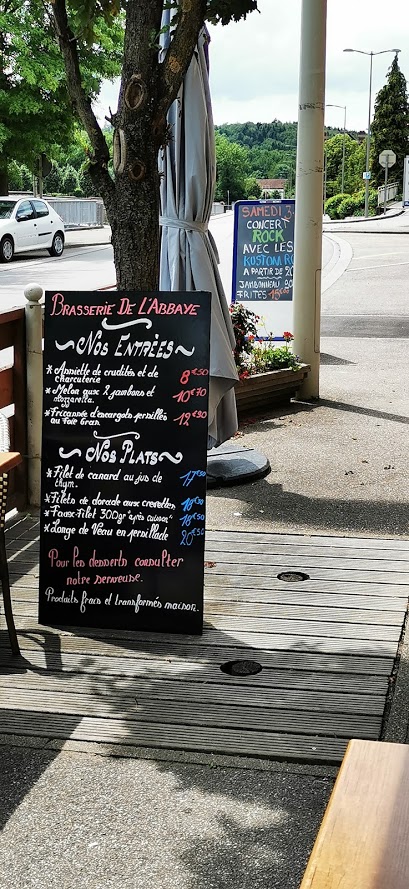 Brasserie De L'Abbaye
Nos Entrées
* Assiette de crudités et de
charcuterie 8€50
* Melon aux 2 jambons et
mozzarella. 10€70
* Fricassée d'escargots persillés
au Foie Gras. 12€90
Nos Plats
* Filet de canard au jus de
thym. 17€50
* Filets de dorade aux crevettes 18€50
* Faux-Filet 300gr "après cuisson" 18€50
* Longe de Veau en persillade 20€50
Pour les desserts consulter
notre serveuse.
Produits frais et transformés maison.
SAMEDI
CONCERT
ROCK
AVEC LES
KUSTOM
A PARTIR DE 20
JAMBONNEAU
FRITES 15€